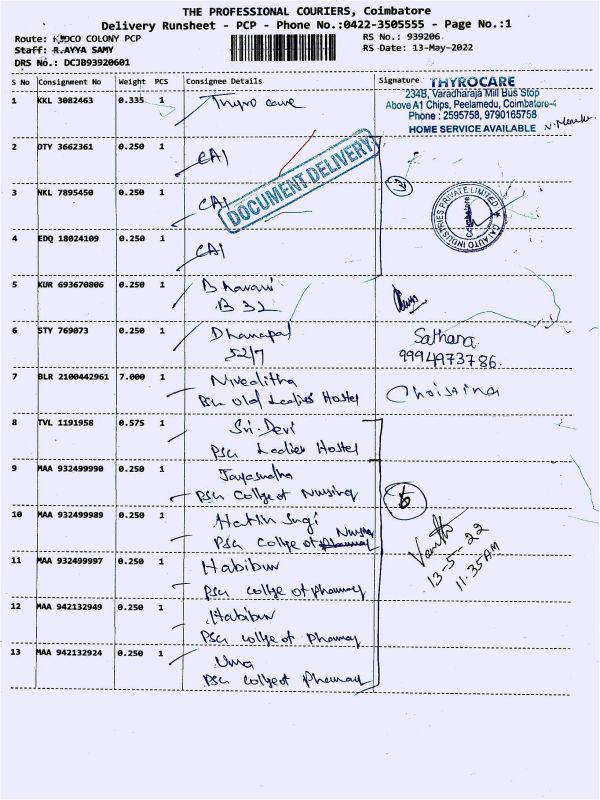 THE PROFESSIONAL COURIERS, Coimbatore
Delivery Runsheet - PCP - Phone No.:0422-3505555 - Page No.:1
Route: KIDCO COLONY PCP
Staff: R.AYYA SAMY
DRS No.: DCJB93920601
RS No.: 939206
RS Date: 13-May-2022
S No Consignment No Weight PCS Consignee Details Signature
THYROCARE
234B, Varadharaja Mill Bus Stop
Above A1 Chips, Peelamedu, Coimbatore-4
Phone : 2595758, 9790165758
HOME SERVICE AVAILABLE
1 KKL 3082463 0.335 1 Thyro care
2 OTY 3662361 0.250 1 CAI
DOCUMENT DELIVERY
3 NKL 7895450 0.250 1 CAI
CAI AUTO INDUSTRIES PRIVATE LIMITED
Coimbatore
4 EDQ 18024109 0.250 1 CAI
5 KUR 693670806 0.250 1 Bhavani
B 32
6 STY 769073 0.250 1 Dhanapal
52/7
Sathana
9994973786
7 BLR 2100442961 7.000 1 Nivealitha
PSG Old Ladies Hostel
Christina
8 TVL 1191958 0.575 1 Sri-Devi
PSG Ladies Hostel
9 MAA 932499990 0.250 1 Jayasudha
PSG College of Nursing
5
10 MAA 932499989 0.250 1
PSG College of Pharmacy Nursing
13-5-22
11.35AM
11 MAA 932499997 0.250 1 Habibur
PSG college of pharmacy
12 MAA 942132949 0.250 1 Habibur
PSG collge of Pharmacy
13 MAA 942132924 0.250 1 Uma
PSG college of Pharmacy